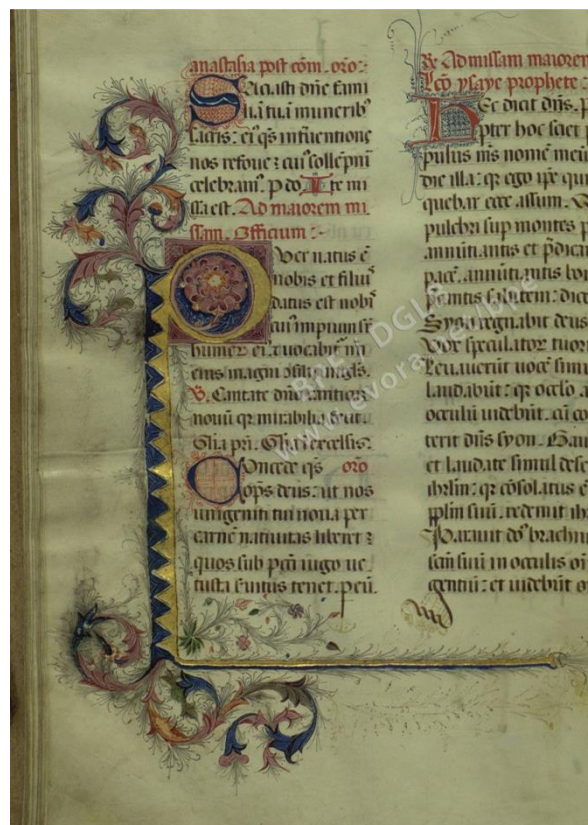 anastasia post cōm. oro:
Saciasti dn̄e fami
liā tuā munerib⁹
sacris: ei⁹ qs īteruentione
nos refoue: cui⁹ sollēpnia
celebram⁹. p do. Ite mi
ssa est. Ad maiorem mi
ssam. Officium:-
Puer natus ē
nobis et fili⁹
datus est nobis
cui⁹ imperium sr̄
humer̄ ei⁹: z uocabit̄ nō
eius magni ɔsilij angls.
V. Cantate dn̄o canticu
nouū qr mirabilia fecit.
Glīa prī. Glīa ī excelsis.
Concede qs oro
ops deus: ut nos
unigeniti tui noua per
carnē natiuitas liberet z
quos sub pcī iugo ue
tusta seruitus tenet. p eū.
R Ad missam maiorem
Lcō ysaye prophete:
Hec dicit dn̄s. p
pter hoc sciet
pulus m̄s nomē meū
die illa: qr ego ip̄e qui
quebar ecce assum. Q
pulchri sup montes p
annūtiantis et p̄dican
pacē. annūtiantis bon
p̄cantis salutem: dice
Syon regnabit deus
Vox speculator tuor
leuauerūt uocē simu
laudabūt: qr oculo a
oculū uidebūt. cū co
terit dn̄s syon. Gau
et laudate simul dese
ihrlm̄: qr cōsolatus ē
pplm̄ suū. redemit ihr
Parauit dn̄s brachiu
sc̄m suū in oculis oi
gentiū: et uidebūt o
BPE / DGLB
www.evora.net/bpe